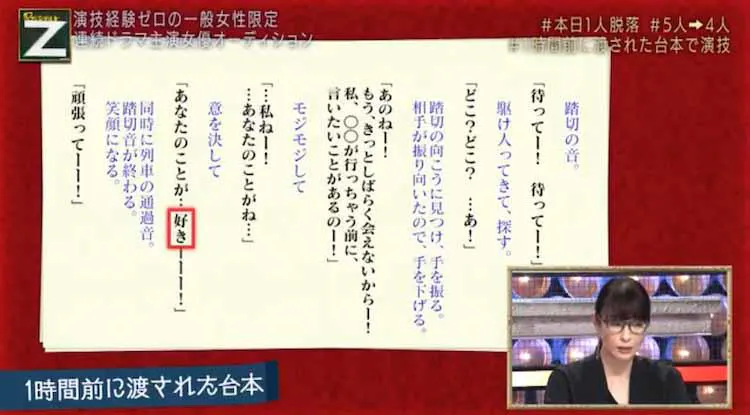 Z
演技経験ゼロの一般女性限定
連続ドラマ主演女優オーディション
#本日1人脱落 #5人➡4人
#1時間前に渡された台本で演技
踏切の音。
「待ってー! 待ってー!」
駆け入ってきて、探す。
「どこ?どこ? …あ!」
踏切の向こうに見つけ、手を振る。
相手が振り向いたので、手を下げる。
「あのねー!
もう、きっとしばらく会えないからー!
私、〇〇が行っちゃう前に、
言いたいことがあるのー!」
モジモジして
「…私ねー!
…あなたのことがね…」
意を決して
「あなたのことが…好きーーー!」
同時に列車の通過音。
踏切音が終わる。
笑顔になる。
「頑張ってーーー!」
1時間前に渡された台本